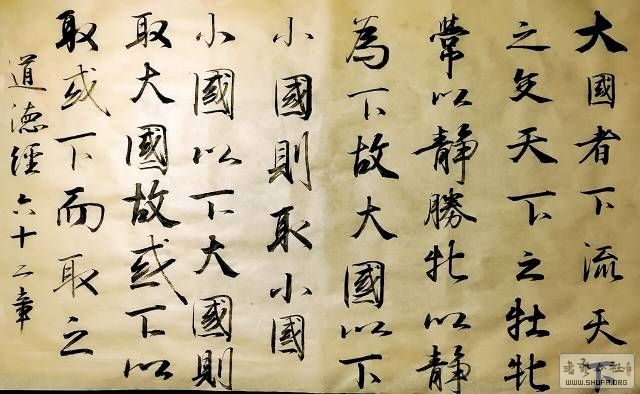 大國者下流天下
之交天下之牡牝
常以靜勝牝以靜
為下故大國以下
小國則取小國
小國以下大國則
取大國故或下以
取或下而取之
道德經六十二章
WWW.SHUFA.ORG